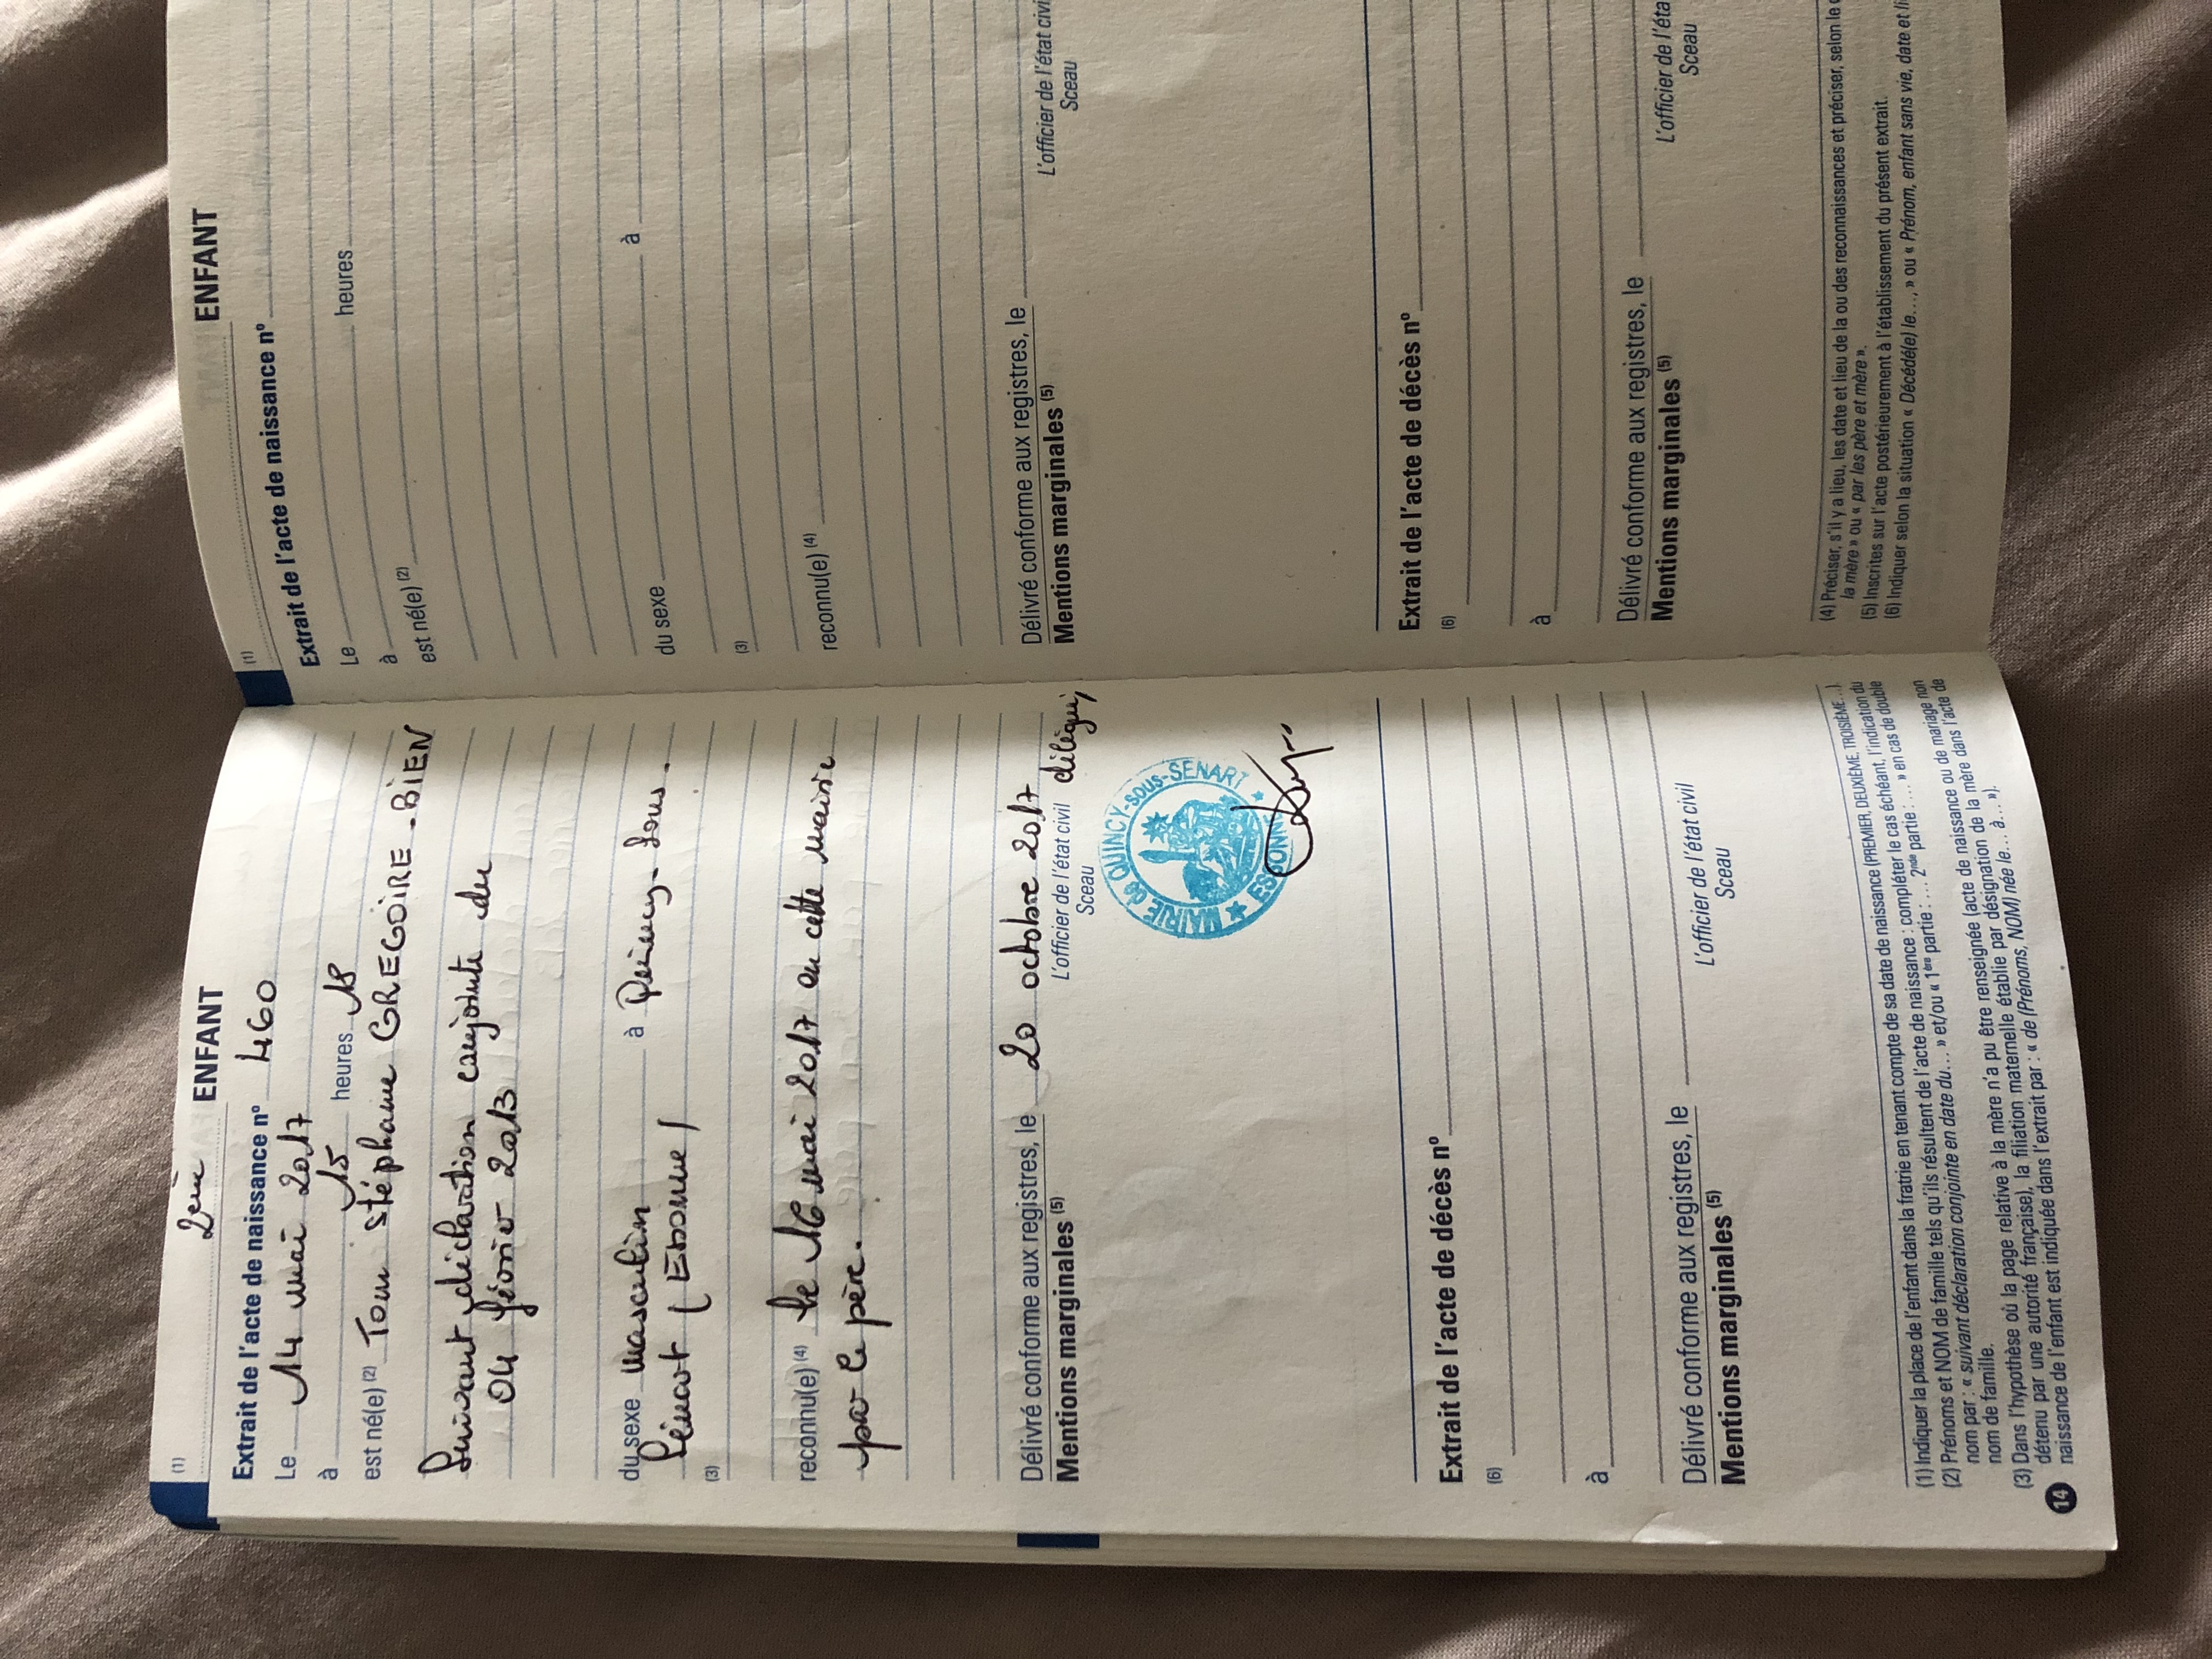 2ème
(1) ENFANT
Extrait de l'acte de naissance nº 460
Le 14 mai 2017
à 15 heures 18
est né(e) (2) Tom stéphane GREGOIRE - BIEN
Suivant déclaration conjointe du
04 février 2013
du sexe masculin à Quincy-Sous-
Sénart (Essonne)
(3)
reconnu(e) (4) le 16 mai 2017 en cette mairie
par le père.
Délivré conforme aux registres, le 20 octobre 2017
Mentions marginales (5)
L'officier de l'état civil délégué,
Sceau
MAIRIE de QUINCY-sous-SENART
ESSONNE
Extrait de l'acte de décès nº
(6)
à
Délivré conforme aux registres, le
Mentions marginales (5)
L'officier de l'état civil
Sceau
(1) Indiquer la place de l'enfant dans la fratrie en tenant compte de sa date de naissance (PREMIER, DEUXIÈME, TROISIÈME…).
(2) Prénoms et NOM de famille tels qu'ils résultent de l'acte de naissance : compléter le cas échéant, l'indication du
nom par : « suivant déclaration conjointe en date du… » et/ou « 1ère partie : … 2nde partie : … » en cas de double
nom de famille.
(3) Dans l'hypothèse où la page relative à la mère n'a pu être renseignée (acte de naissance ou de mariage non
détenu par une autorité française), la filiation maternelle établie par désignation de la mère dans l'acte de
naissance de l'enfant est indiquée dans l'extrait par : « de (Prénoms, NOM) née le… à… »).
14
(1) ENFANT
Extrait de l'acte de naissance nº
Le heures
à
est né(e) (2)
du sexe à
(3)
reconnu(e) (4)
Délivré conforme aux registres, le
Mentions marginales (5)
L'officier de l'état civi
Sceau
Extrait de l'acte de décès nº
(6)
à
Délivré conforme aux registres, le
Mentions marginales (5)
L'officier de l'éta
Sceau
(4) Préciser, s'il y a lieu, les date et lieu de la ou des reconnaissances et préciser, selon le
la mère » ou « par les père et mère ».
(5) Inscrites sur l'acte postérieurement à l'établissement du présent extrait.
(6) Indiquer selon la situation « Décédé(e) le…, » ou « Prénom, enfant sans vie, date et li